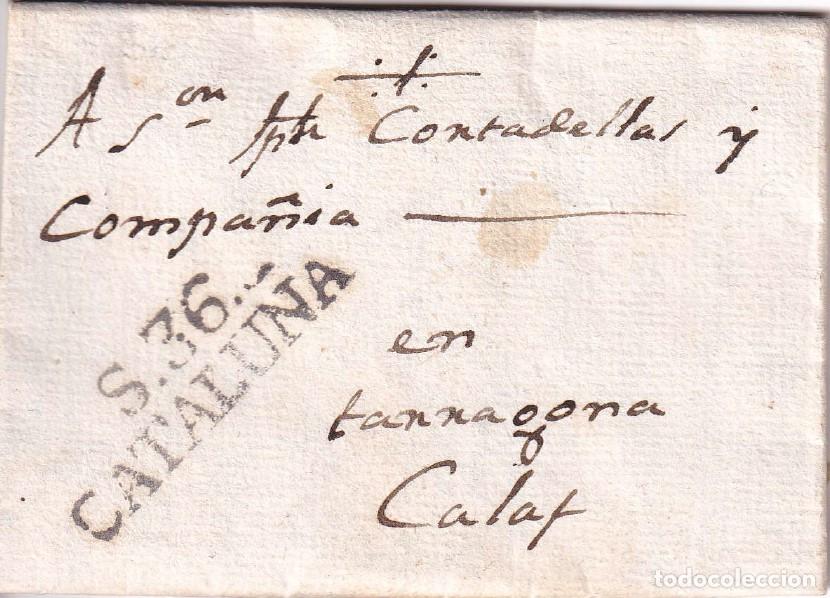 A Sʳ ᵒⁿ Jph Contadellas y
Compañia
en
tarragona
Calaf
S.36.
CATALUNA
todocoleccion